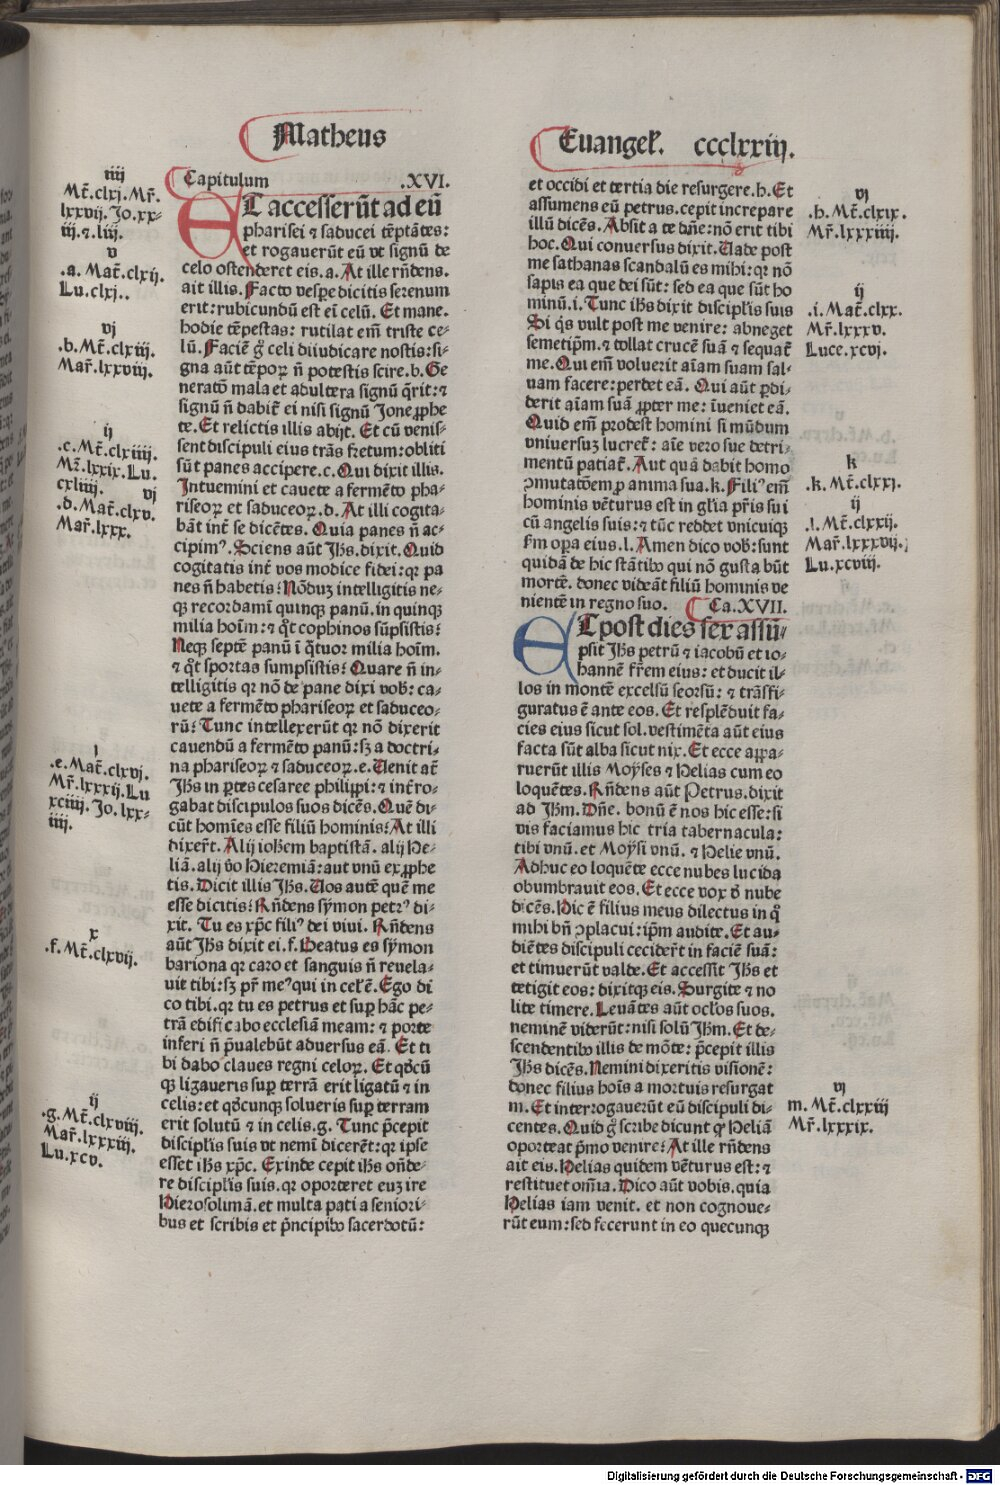 Matheus
Euangel̃. ccclxxiij.
iiij
Mt̃.clxj.Mr̃.
lxxvij.Jo.xx-
iij.⁊.liij.
v
.a. Mat̃.clxij.
Lu.clxj..
vj
.b.Mt̃.clxiij.
Mar̃.lxxviij.
ij
.c.Mt̃.clxiiij.
Mr̃.lxxix.Lu.
cxliiij.
vj
.d.Mat̃.clxv.
Mar̃.lxxx.
i
.e.Mat̃.clxvj.
Mr̃.lxxxij.Lu
xciiij.Jo.lxx-
iiij.
x
.f.Mt̃.clxvij.
ij
.g.Mt̃.clxviij.
Mar̃.lxxxiij.
Lu.xcv.
Capitulum .XVI.
ET accesserũt ad eũ
pharisei ⁊ saducei tẽptãtes:
et rogauerũt eũ vt signũ de
celo ostenderet eis.a. At ille rñdens.
ait illis. Facto vespe dicitis serenum
erit: rubicundũ est ei celũ. Et mane.
hodie tẽpestas: rutilat em̃ triste ce-
lũ. Faciẽ g̊ celi diiudicare nostis: si-
gna aũt tẽpoꝝ ñ potestis scire.b. Ge
neratõ mala et adultera signũ q̃rit: ⁊
signũ ñ dabit̃ ei nisi signũ Jone ꝓphe
te. Et relictis illis abijt. Et cũ venis-
sent discipuli eius trãs fretum: obliti
sũt panes accipere.c. Qui dixit illis.
Intuemini et cauete a fermẽto pha-
riseoꝝ et saduceoꝝ.d. At illi cogita-
bãt int̃ se dicẽtes. Quia panes ñ ac-
cipimꝰ. Sciens aũt Jhs̃ dixit. Quid
cogitatis int̃ vos modice fidei: qꝛ pa
nes ñ habetis: Nõduꝫ intelligitis ne-
qꝫ recordami quinqꝫ panũ. in quinqꝫ
milia hoĩm: ⁊ q̊t cophinos sũpsistis:
Neqꝫ septẽ panũ ĩ q̃tuor milia hoĩm.
⁊ q̊t sportas sumpsistis: Quare ñ in-
telligitis qꝛ nõ de pane dixi vob̃: ca-
uete a fermẽto phariseoꝝ et saduceo-
rũ: Tunc intellexerũt qꝛ nõ dixerit
cauendũ a fermẽto panũ: sꝫ a doctri-
na phariseoꝝ ⁊ saduceoꝝ.e. Uenit at̃
Jhs̃ in ꝑtes cesaree philippi: ⁊ int̃ro-
gabat discipulos suos dicẽs. Quẽ di-
cũt homĩes esse filiũ hominis: At illi
dixer̃t. Alij ioh̃em baptistã. alij he-
liã. alij v̊o hieremiã: aut vnũ ex ꝓphe
tis. Dicit illis Jhs̃. Uos autẽ quẽ me
esse dicitis: Rñdens sẏmon petrꝰ di-
xit. Tu es xp̃c filiꝰ dei viui. Rñdens
aũt Jhs̃ dixit ei.f. Beatus es sẏmon
bariona qꝛ caro et sanguis ñ reuela-
uit tibi: sꝫ pr̃ meꝰ qui in cel̃ ẽ. Ego di
co tibi. qꝛ tu es petrus et suꝑ hãc pe-
trã edificabo ecclesiã meam: ⁊ porte
inferi ñ p̃ualebũt aduersus eã. Et ti
bi dabo claues regni celoꝝ. Et qđcũ
qꝫ ligaueris suꝑ terrã erit ligatũ ⁊ in
celis: et qđcunqꝫ solueris suꝑ terram
erit solutũ ⁊ in celis.g. Tunc p̃cepit
discipl̃is suis vt nemĩ dicerẽt: qꝛ ipse
esset ihs̃ xp̃c. Exinde cepit ihs̃ oñde-
re discipl̃is suis. qꝛ oporteret euꝫ ire
hierosolimã. et multa pati a seniori-
bus et scribis et p̃ncipibꝰ sacerdotũ:
et occidi et tertia die resurgere.h. Et
assumens eũ petrus. cepit increpare
illũ dicẽs. Absit a te dñe: nõ erit tibi
hoc. Qui conuersus dixit. Uade post
me sathanas scandalũ es mihi: qꝛ nõ
sapis ea que dei sũt: sed ea que sũt ho
minũ.i. Tunc ihs̃ dixit discipl̃is suis
Si q̊s vult post me venire: abneget
semetip̃m. ⁊ tollat crucẽ suã ⁊ sequat̃
me. Qui em̃ voluerit aĩam suam sal-
uam facere: perdet eã. Qui aũt ꝑdi-
derit aĩam suã ꝓpter me: ĩueniet eã.
Quid em̃ prodest homini si mũdum
vniuersuꝫ lucret̃: aĩe vero sue detri-
mentũ patiat̃. Aut quã dabit homo
ꝯmutatõem ꝓ anima sua.k. Filiꝰ em̃
hominis vẽturus est in gl̃ia pr̃is sui
cũ angelis suis: ⁊ tũc reddet vnicuiqꝫ
km̃ oꝑa eius.l. Amen dico vob̃: sunt
quidã de hic stãtibꝰ qui nõ gustabũt
mortẽ. donec videãt filiũ hominis ve
nientẽ in regno suo. Ca.XVII.
ET post dies sex assũ-
psit Jhs̃ petrũ ⁊ iacobũ et io-
hannẽ fr̃em eius: et ducit il-
los in montẽ excelsũ seorsũ: ⁊ trãsfi-
guratus ẽ ante eos. Et resplẽduit fa-
cies eius sicut sol. vestimẽta aũt eius
facta sũt alba sicut nix. Et ecce appa-
ruerũt illis Moẏses ⁊ helias cum eo
loquẽtes. Rñdens aũt Petrus. dixit
ad Jhm̃. Dñe. bonũ ẽ nos hic esse: si
vis faciamus hic tria tabernacula:
tibi vnũ. et Moẏsi vnũ. ⁊ helie vnũ.
Adhuc eo loquẽte ecce nubes lucida
obumbrauit eos. Et ecce vox đ nube
dicẽs. Hic ẽ filius meus dilectus in q̊
mihi bñ ꝯplacui: ip̃m audite. Et au-
diẽtes discipuli cecider̃t in faciẽ suã:
et timuerũt valde. Et accessit Jhs̃ et
tetigit eos: dixitqꝫ eis. Surgite ⁊ no
lite timere. Leuãtes aũt oclõs suos.
neminẽ viderũt: nisi solũ Jhm̃. Et de-
scendentibꝰ illis de mõte: p̃cepit illis
Jhs̃ dicẽs. Nemini dixeritis visionẽ:
donec filius hoĩs a mortuis resurgat
m. Et interrogauerũt eũ discipuli di-
centes. Quid g̊ scribe dicunt qꝙ heliã
oporteat p̃mo venire: At ille rñdens
ait eis. Helias quidem vẽturus est: ⁊
restituet om̃ia. Dico aũt vobis. quia
helias iam venit. et non cognoue-
rũt eum: sed fecerunt in eo quecunqꝫ
vj
.h. Mt̃.clxix.
Mr̃.lxxxiiij.
ij
.i. Mat̃.clxx.
Mr̃.lxxxv.
Luce.xcvj.
k
.k. Mt̃.clxxj.
ij
.l. Mt̃.clxxij.
Mar̃.lxxxvij.
Lu.xcviij.
vj
m. Mt̃.clxxiij
Mr̃.lxxxix.
Digitalisierung gefördert durch die Deutsche Forschungsgemeinschaft - DFG